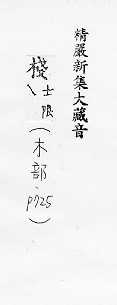 精嚴新集大藏音
棧
士限
(木部、p725)